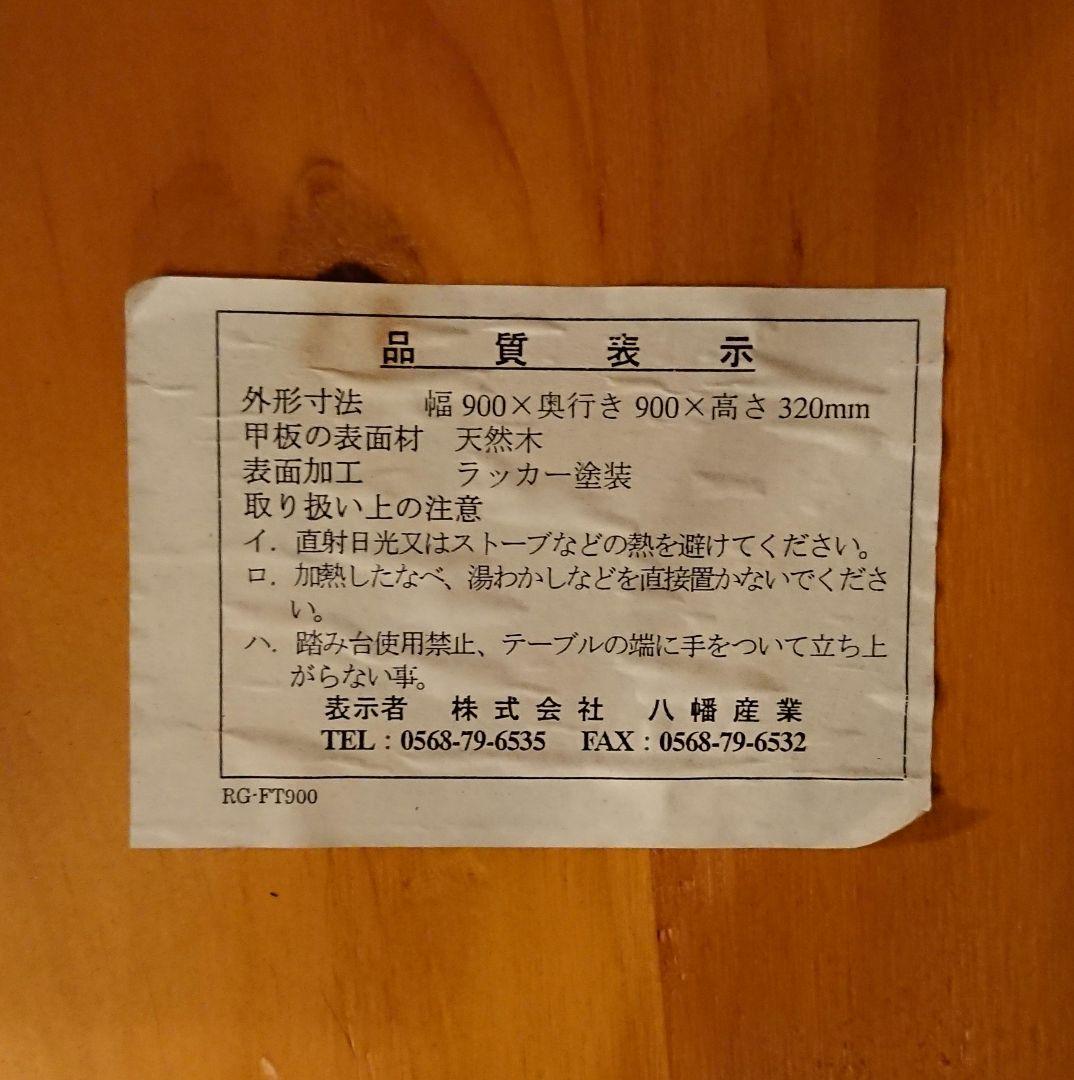 品質表示
外形寸法 幅 900×奥行き 900×高さ 320mm
甲板の表面材 天然木
表面加工 ラッカー塗装
取り扱い上の注意
イ．直射日光又はストーブなどの熱を避けてください。
ロ．加熱したなべ、湯わかしなどを直接置かないでくださ
い。
ハ．踏み台使用禁止、テーブルの端に手をついて立ち上
がらない事。
表示者 株式会社 八幡産業
TEL：0568-79-6535 FAX：0568-79-6532
RG-FT900